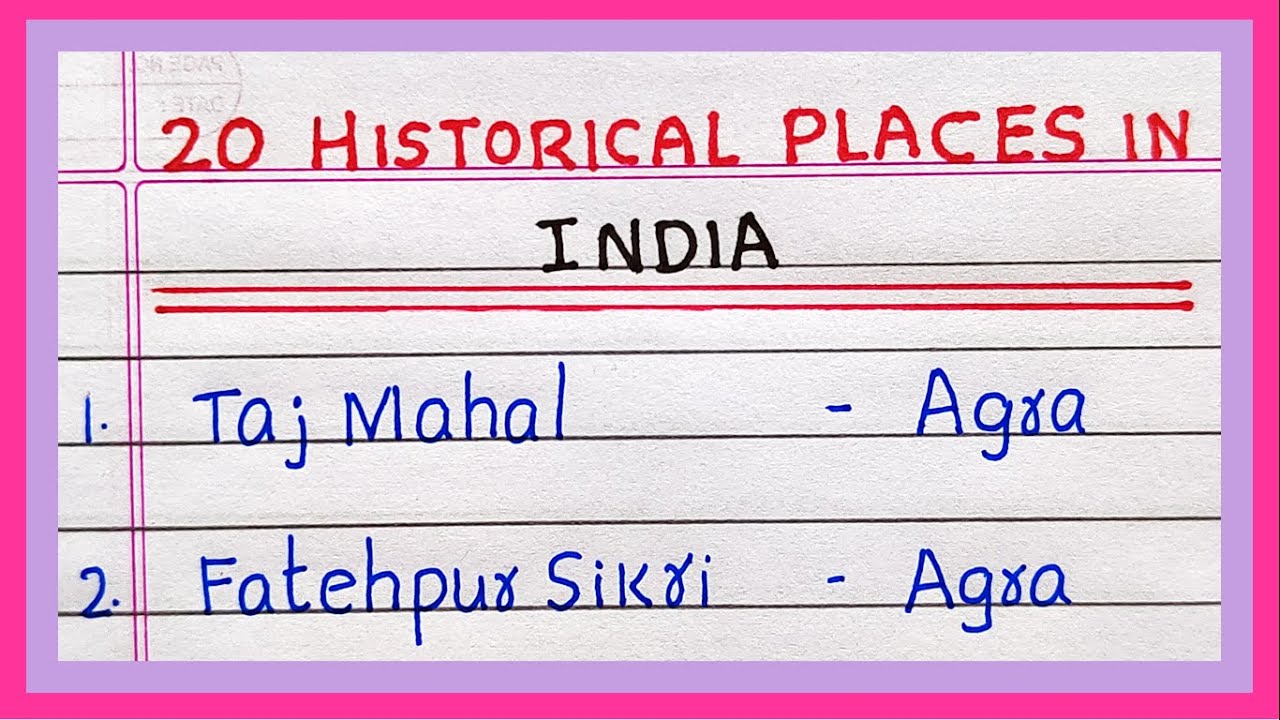 20 HISTORICAL PLACES IN
INDIA
1. Taj Mahal - Agra
2. Fatehpur Sikri - Agra